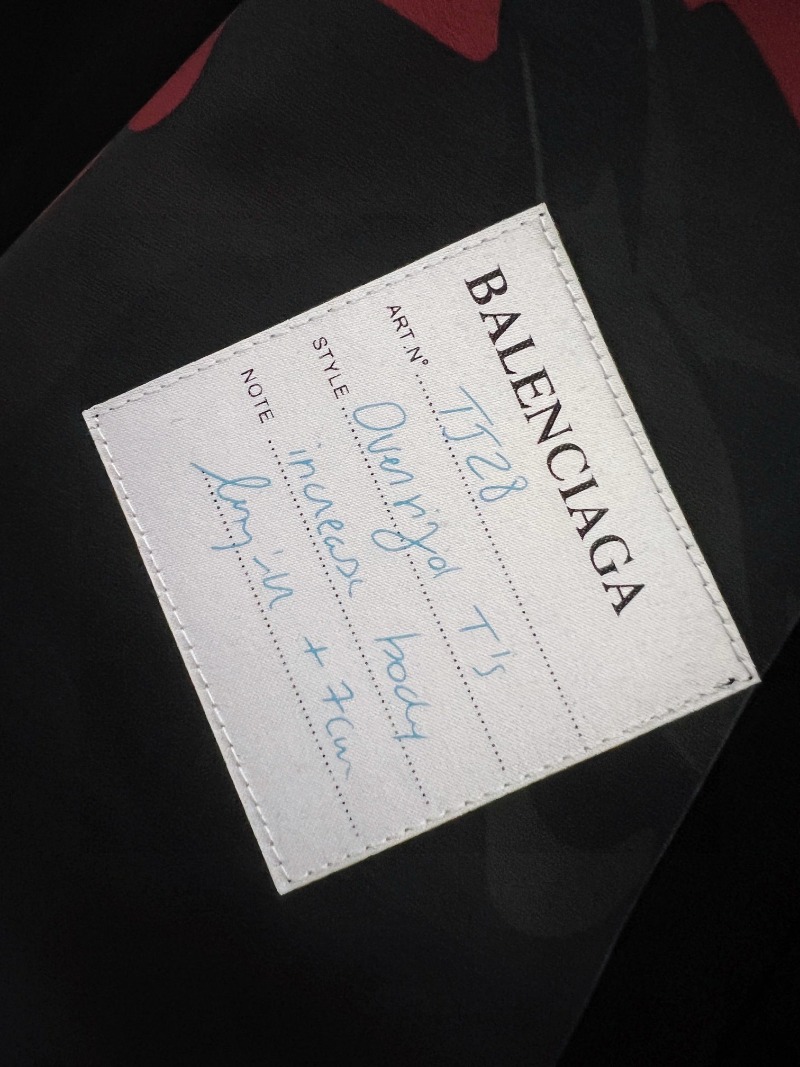 BALENCIAGA
ART.N° TJ28
STYLE Oversized T's
NOTE increase body
length + 7cm